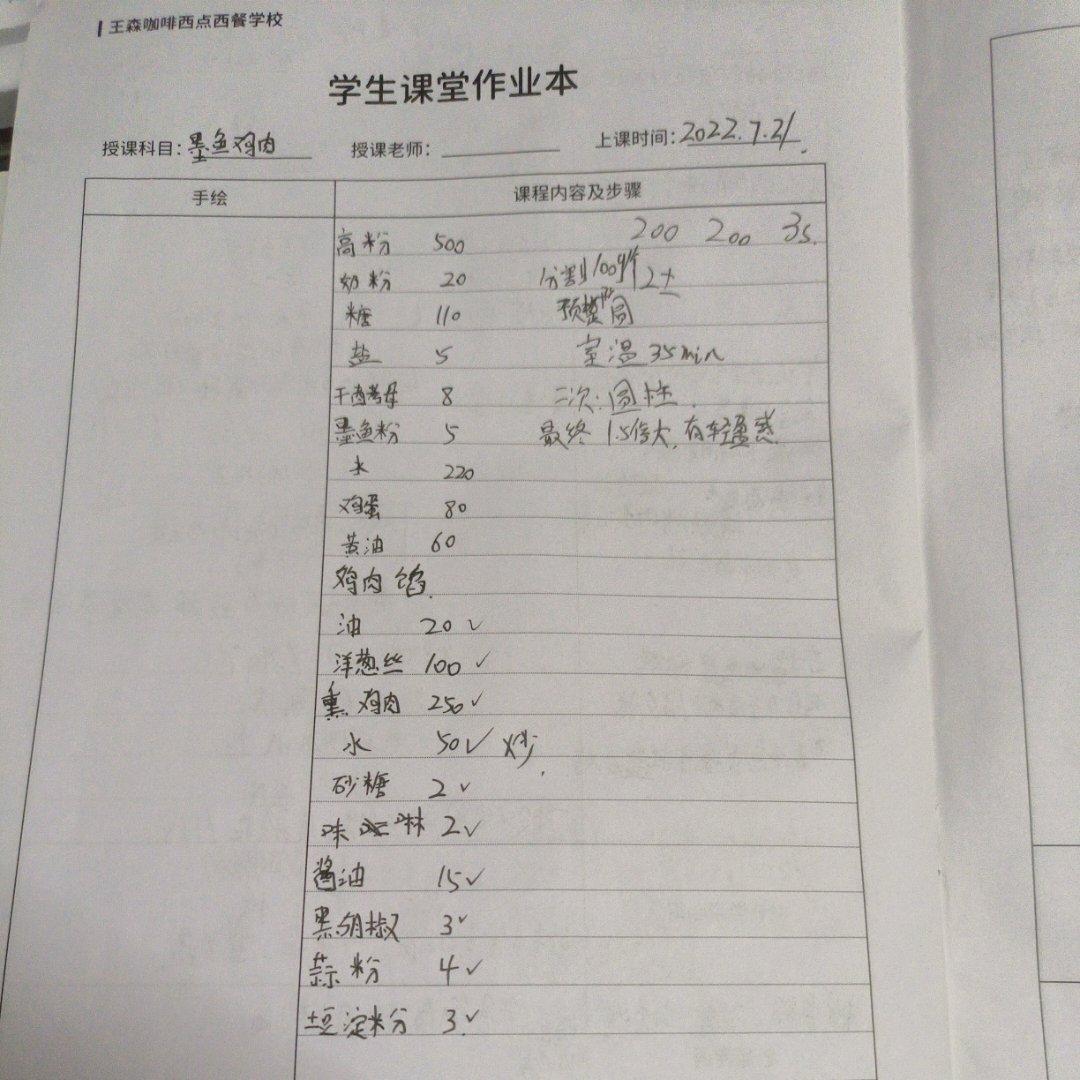 王森咖啡西点西餐学校
学生课堂作业本
授课科目：墨鱼鸡肉 授课老师： 上课时间：2022.7.21.
手绘 课程内容及步骤
高粉 500 200 200 3s.
奶粉 20 分割100g/个
糖 110 预整 圆
盐 5 室温 35min
干酵母 8 二次：圆柱.
墨鱼粉 5 最终 1.5倍大，有轻盈感
水 220
鸡蛋 80
黄油 60
鸡肉馅.
油 20 ✓
洋葱丝 100 ✓
熏鸡肉 250 ✓
水 50 ✓ 炒.
砂糖 2 ✓
味 淋 2 ✓
酱油 15 ✓
黑胡椒 3 ✓
蒜粉 4 ✓
土豆淀粉 3. ✓